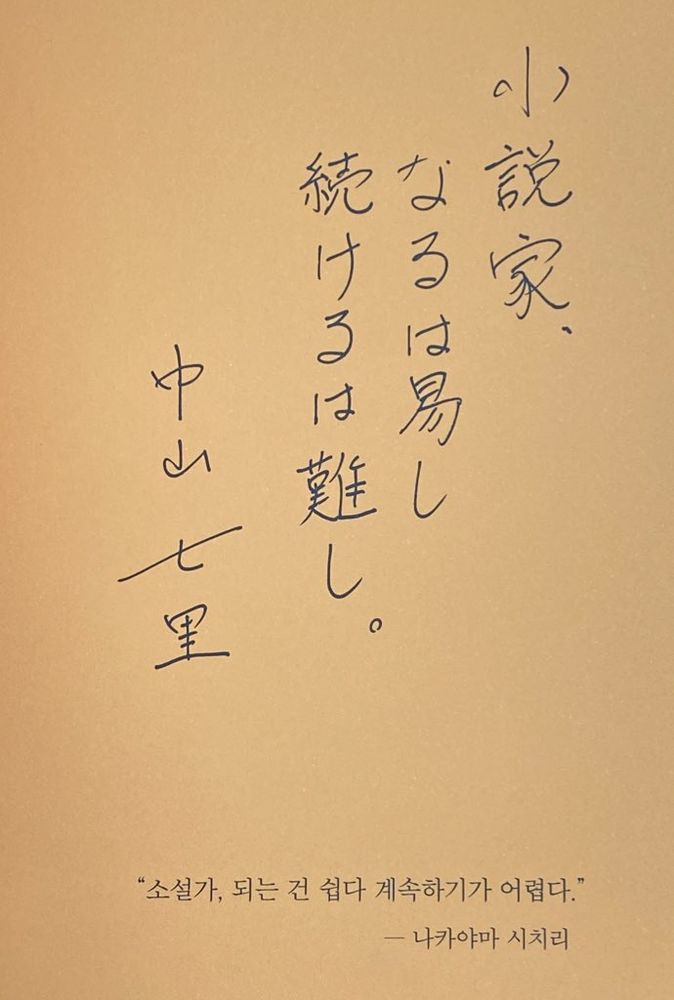 小説家、
なるは易し
続けるは難し。
中山七里
“소설가, 되는 건 쉽다 계속하기가 어렵다.”
— 나카야마 시치리